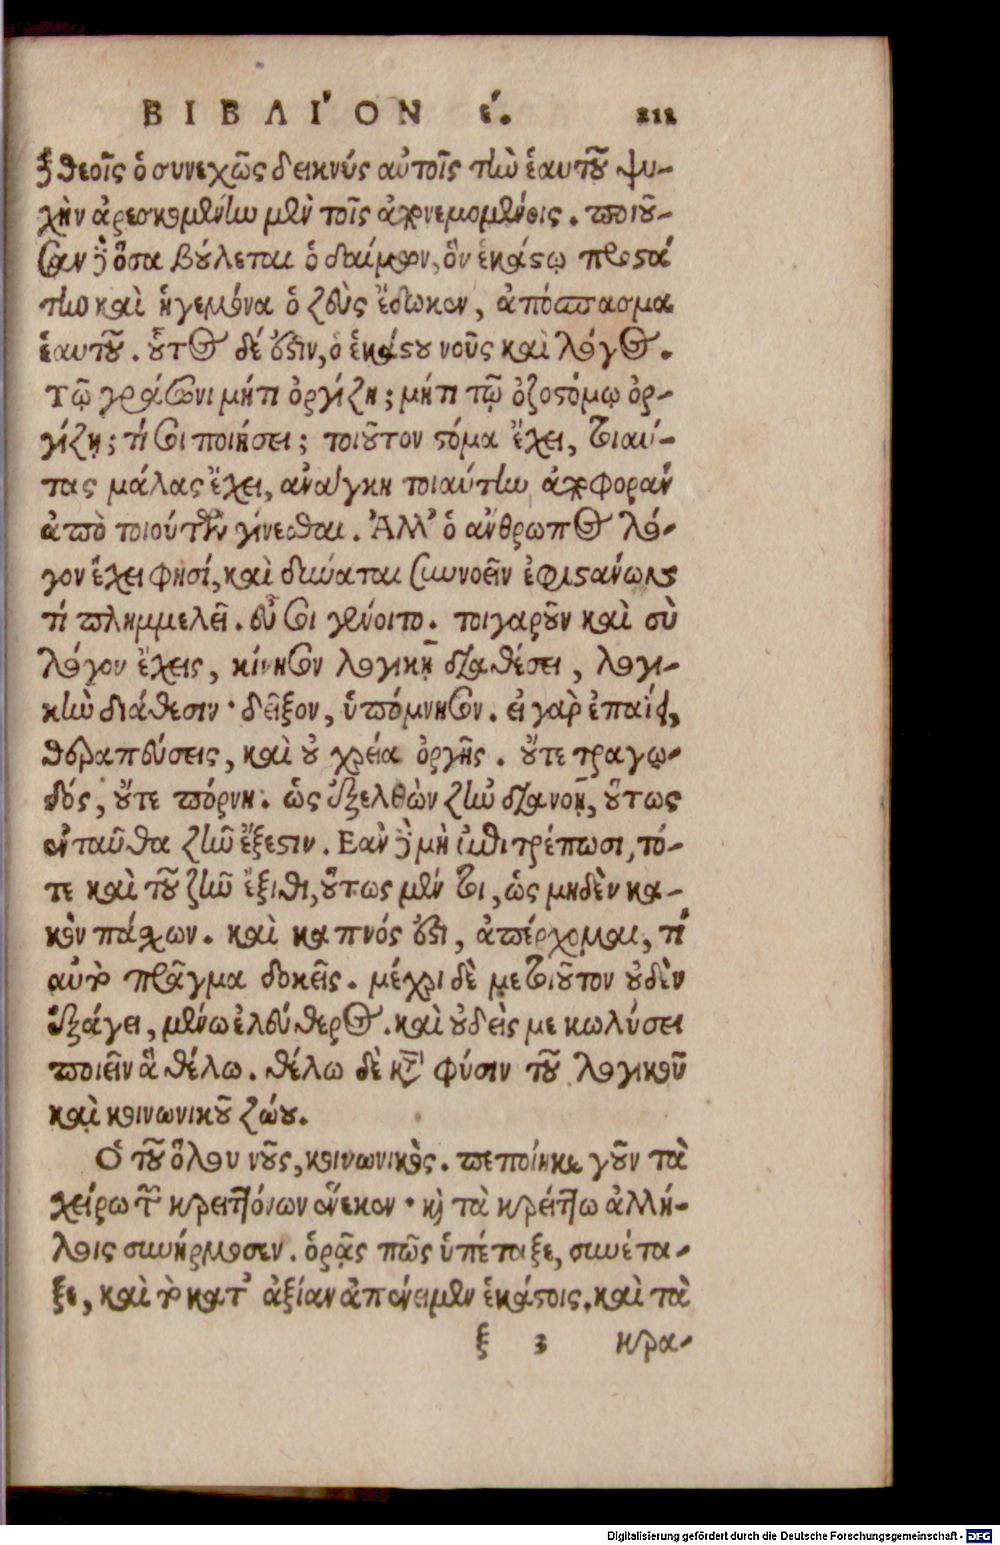 ΒΙΒΛΙ'ΟΝ ε'. 211
ζῇ θεοῖς ὁ συνεχῶς δεικνύς αὐτοῖς τὴν ἑαυτοῦ ψυ-
χὴν ἀρεσκομένην μὲν τοῖς ἀπονεμομένοις. ποιοῦ-
σαν δὲ ὅσα βούλεται ὁ δαίμων, ὃν ἑκάστῳ προστά
την καὶ ἡγεμόνα ὁ ζεὺς ἔδωκεν, ἀπόσπασμα
ἑαυτοῦ. οὗτος δέ ἐστιν, ὁ ἑκάστου νοῦς καὶ λόγος.
Τῷ γράσωνι μήτι ὀργίζῃ; μήτι τῷ ὀζοστόμῳ ὀρ-
γίζῃ; τί σοι ποιήσει; τοιοῦτον στόμα ἔχει, τοιαύ-
τας μάλας ἔχει, ἀνάγκη τοιαύτην ἀποφορὰν
ἀπὸ τοιούτων γίνεσθαι. Ἀλλ' ὁ ἄνθρωπος λό-
γον ἔχει φησί, καὶ δύναται συννοεῖν ἐφιστάνων
τί πλημμελεῖ. εὖ σοι γένοιτο. τοιγαροῦν καὶ σὺ
λόγον ἔχεις, κίνησον λογικῇ διαθέσει, λογι-
κὴν διάθεσιν· δεῖξον, ὑπόμνησον. εἰ γὰρ ἐπαΐει,
θεραπεύσεις, καὶ οὐ χρεία ὀργῆς. οὔτε τραγῳ-
δός, οὔτε πόρνη. ὡς ἐξελθὼν ζῆν διανοῇ, οὕτως
ἐνταῦθα ζῆν ἔξεστιν. Εὰν δὲ μὴ ἐπιτρέπωσι, τό-
τε καὶ τοῦ ζῆν ἔξιθι, οὕτως μέν τοι, ὡς μηδὲν κα-
κὸν πάσχων. καὶ καπνός ἐστι, ἀπέρχομαι, τί
αὐτὸ πρᾶγμα δοκεῖς. μέχρι δὲ με τοιοῦτον οὐδὲν
ἐξάγει, μένω ἐλεύθερος. καὶ οὐδείς με κωλύσει
ποιεῖν ἃ θέλω. θέλω δὲ κατὰ φύσιν τοῦ λογικοῦ
καὶ κοινωνικοῦ ζώου.
Ὁ τοῦ ὅλου νοῦς, κοινωνικός. πεποίηκε γοῦν τὰ
χείρω τῶν κρειττόνων ἕνεκεν· καὶ τὰ κρείττω ἀλλή-
λοις συνήρμοσεν. ὁρᾷς πῶς ὑπέταξε, συνέτα-
ξε, καὶ τὸ κατ' ἀξίαν ἀπένειμεν ἑκάστοις, καὶ τὰ
ξ 3 κρα-
Digitalisierung gefördert durch die Deutsche Forschungsgemeinschaft - DFG